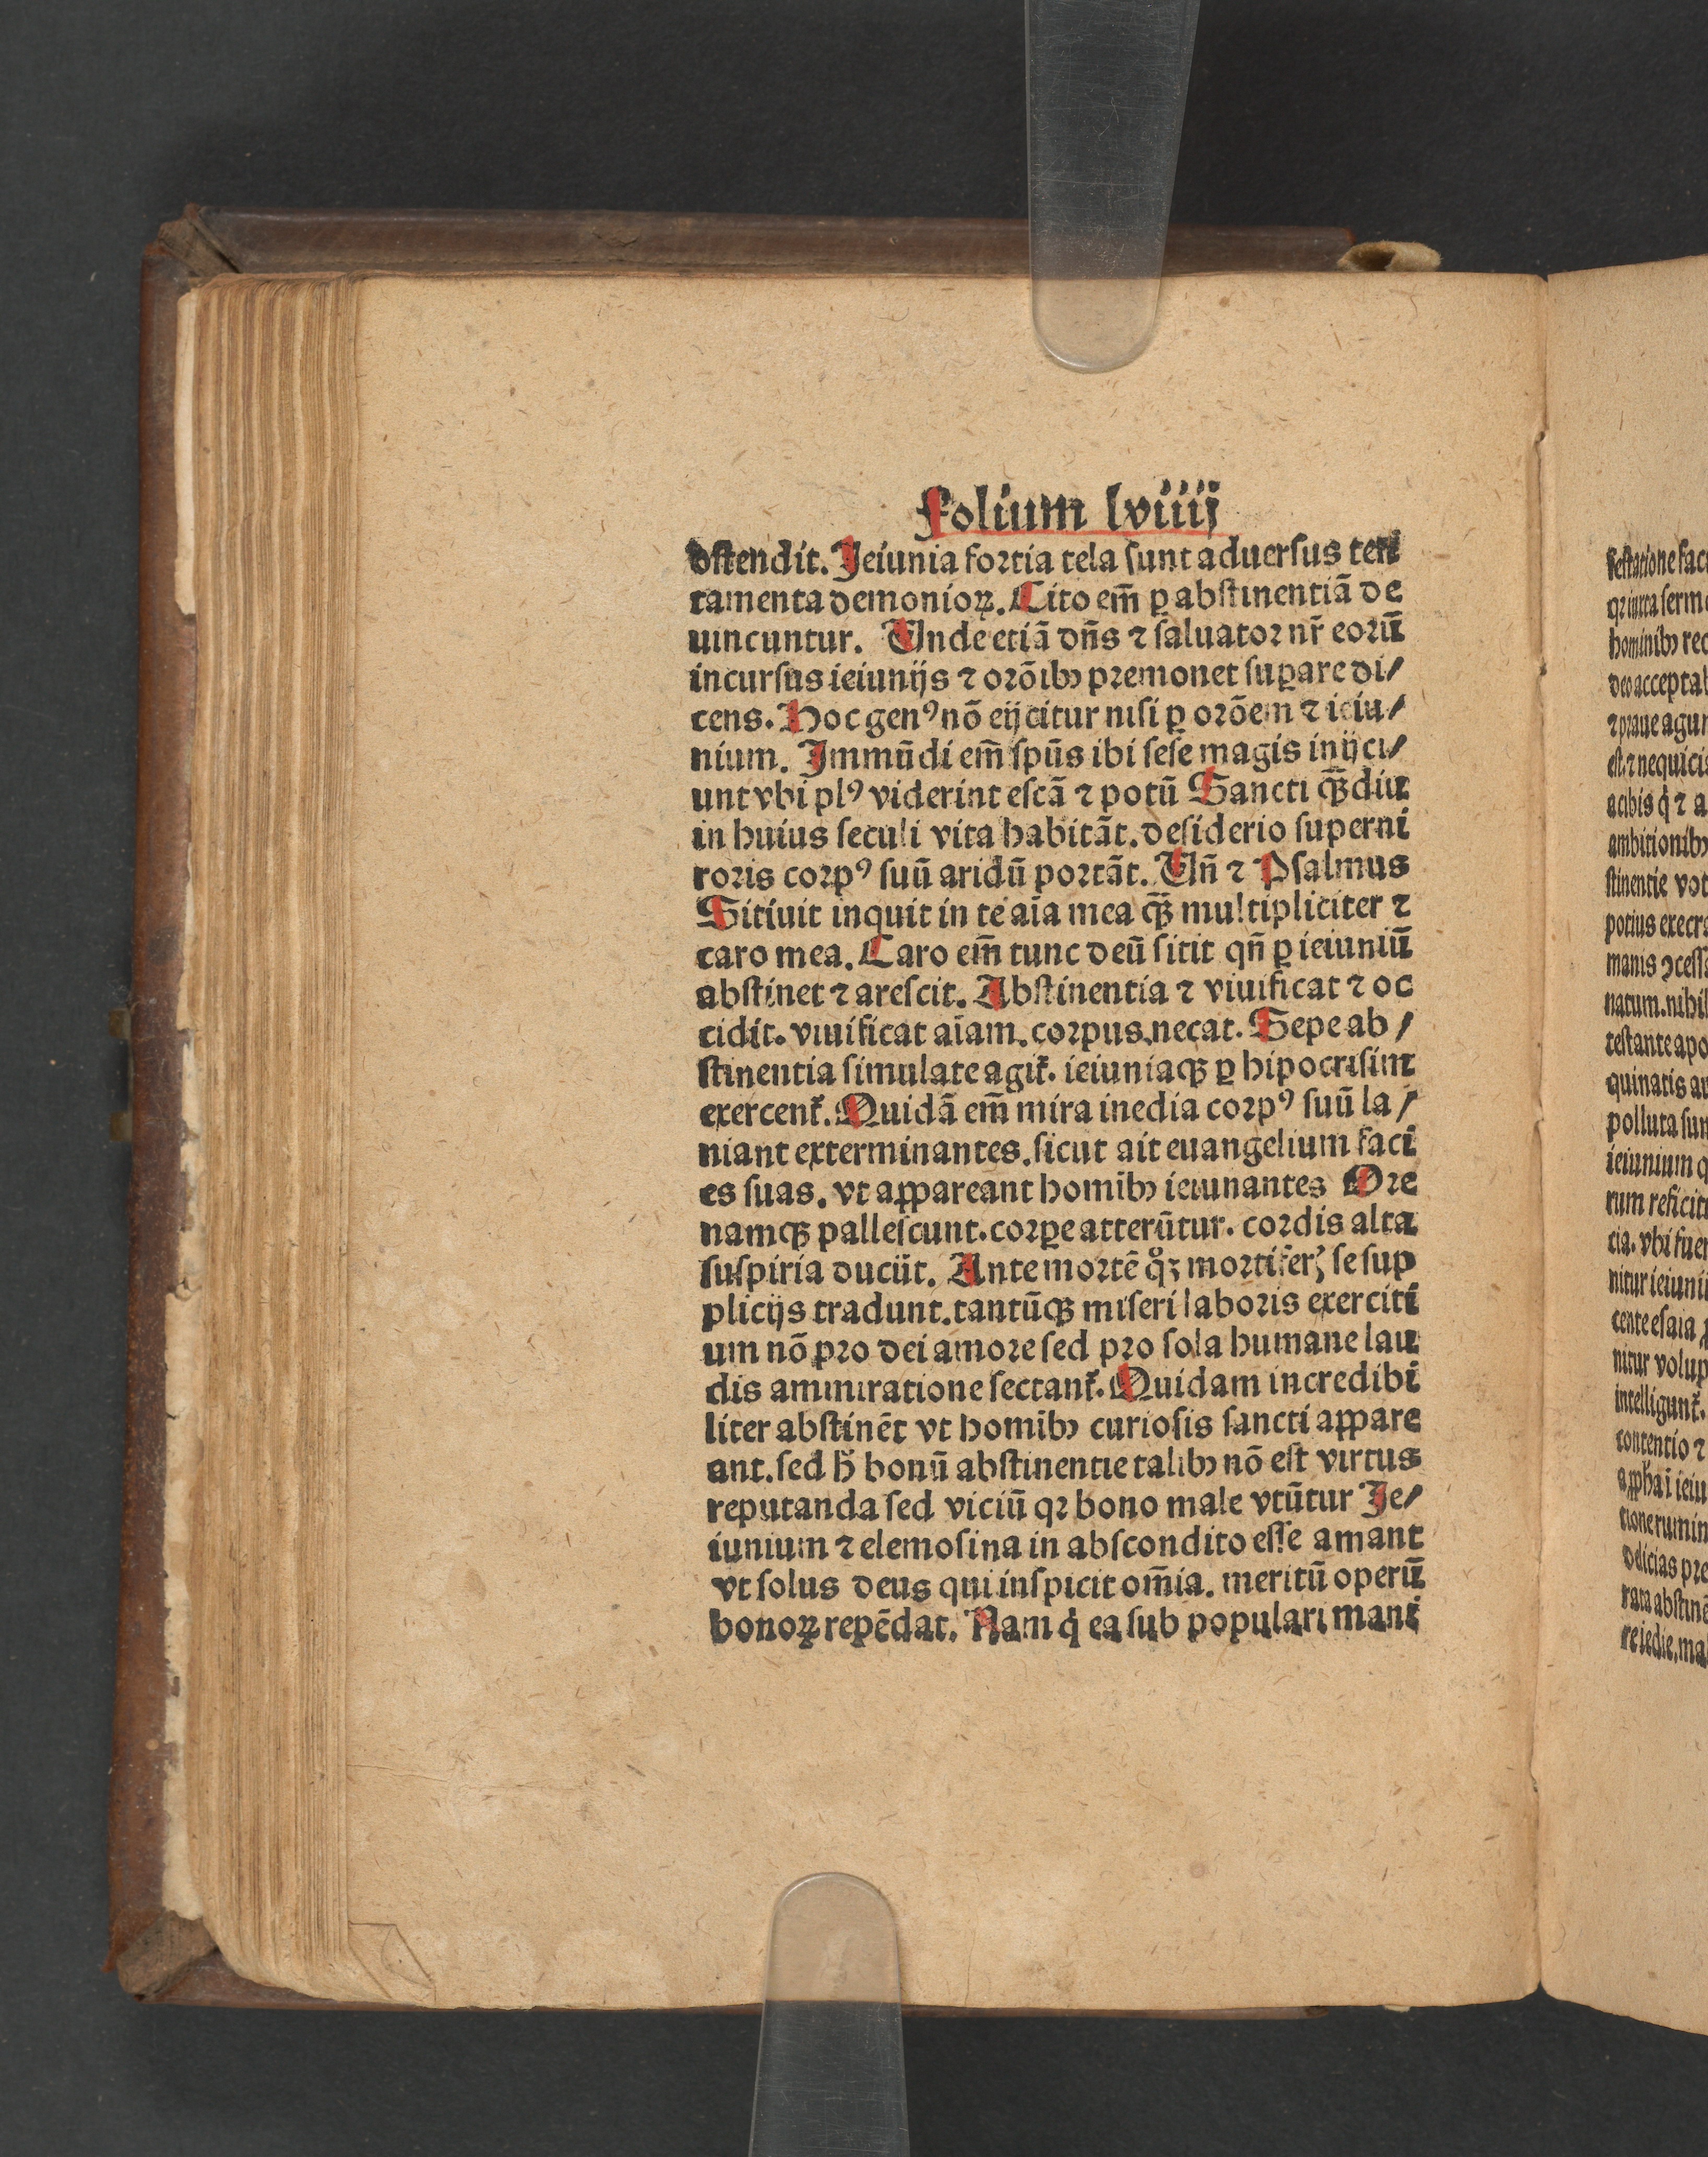 Folium lviiij
ostendit. Ieiunia fortia tela sunt aduersus ten
tamenta demonioꝝ. Cito em̄ ꝑ abstinentiā de
uincuntur. Unde etiā dn̄s ⁊ saluator nr̄ eorū
incursus ieiunijs ⁊ orōibꝰ premonet suꝑare di/
cens. Hoc genꝰ nō eijcitur nisi ꝑ orōem ⁊ ieiu/
nium. Immūdi em̄ spūs ibi sese magis inijci/
unt vbi plꝰ viderint escā ⁊ potū Sancti qꝫ̄diu
in huius seculi vita habitāt. desiderio superni
roris corpꝰ suū aridū portāt. Un̄ ⁊ Psalmus
Sitiuit inquit in te aīa mea qꝫ̄ multipliciter ⁊
caro mea. Caro em̄ tunc deū sitit qn̄ ꝑ ieiuniū
abstinet ⁊ arescit. Abstinentia ⁊ viuificat ⁊ oc
cidit. viuificat aīam. corpus necat. Sepe ab /
stinentia simulate agit̄. ieiuniaqꝫ ꝑ hipocrisim
exercent̄. Quidā em̄ mira inedia corpꝰ suū la /
niant exterminantes. sicut ait euangelium faci
es suas. vt aꝑpareant homibꝰ ieiunantes Ore
namqꝫ pallescunt. corꝑe atterūtur. cordis alta
suspiria ducūt. Ante mortē qͦꝫ mortifer̄ se sup
plicijs tradunt. tantūqꝫ miseri laboris exerciti
um nō pro dei amore sed pro sola humane lau
dis ammiratione sectant̄. Quidam incredibi
liter abstinēt vt homibꝰ curiosis sancti aꝑpare
ant. sed h̄ bonū abstinentie talibꝰ nō est virtus
reputanda sed viciū qꝛ bono male vtūtur Ie/
iunium ⁊ elemosina in abscondito esse amant
vt solus deus qui inspicit om̄ia. meritū operū
bonoꝝ repēdat. Nam q̇ ea sub populari mani